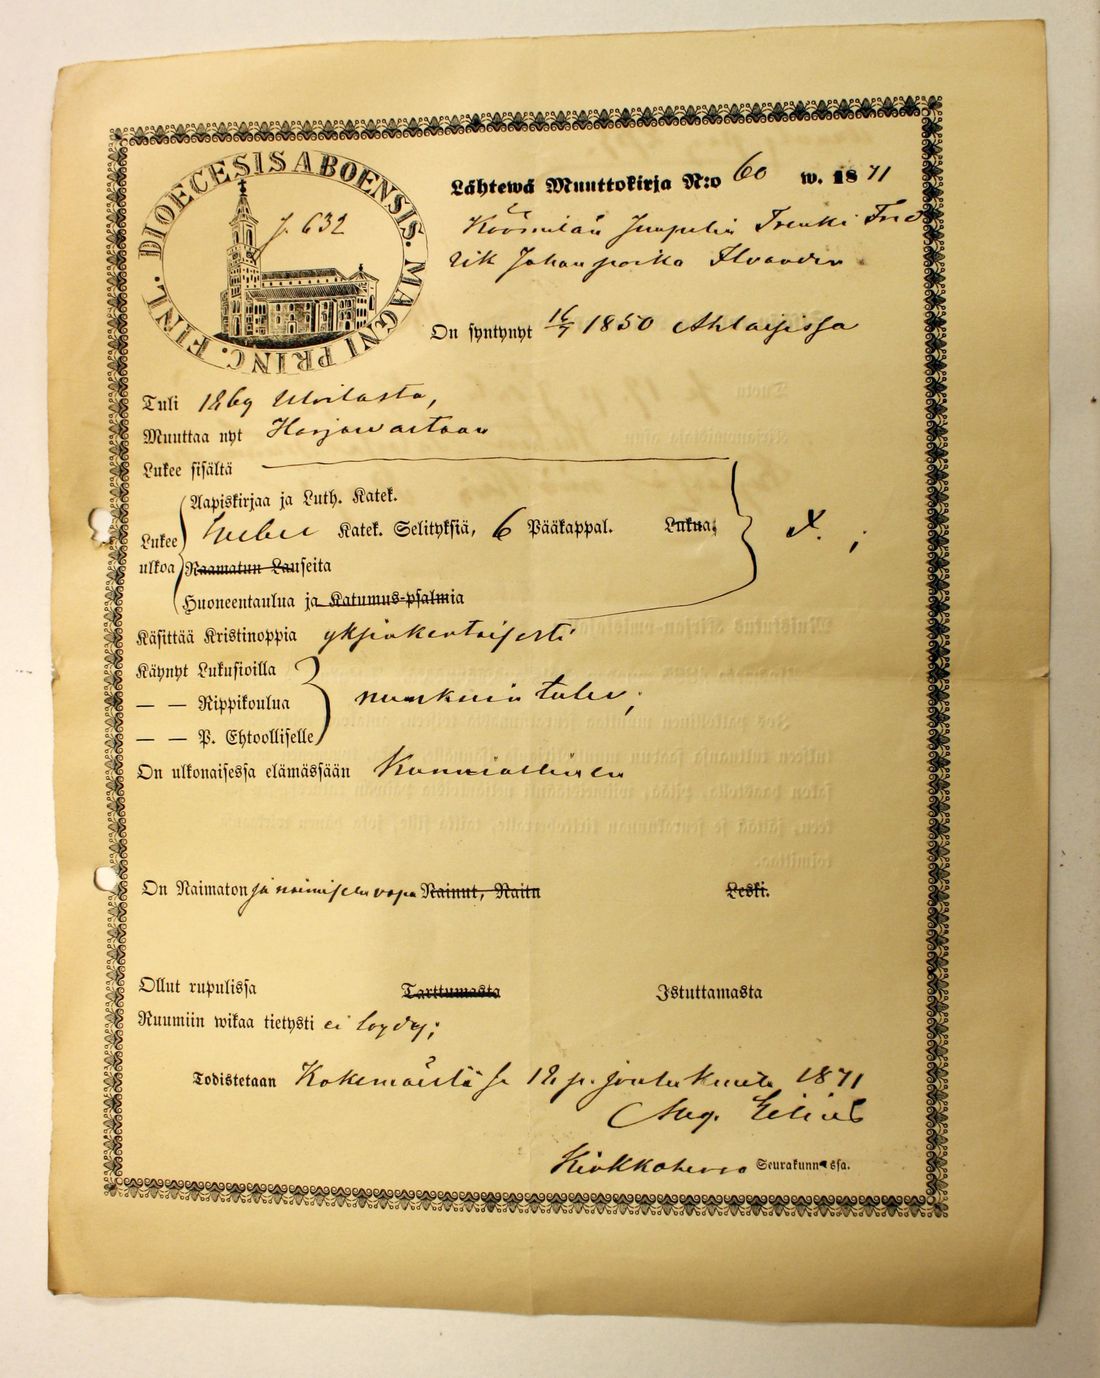 DIOECESIS ABOENSIS. MAGNI PRINC. FINL.
J. 632
Lähtewä Muuttokirja N:o 60 w. 1871
Juupelin Trenki Fred
rik Johanpoika
On syntynyt 16/7 1850 Ahlaisissa
Tuli 1869 Ulvilasta,
Muuttaa nyt Harjawartaan
Lukee sisältä
Aapiskirjaa ja Luth. Katek.
Lukee Katek. Selityksiä, 6 Pääkappal. Lukua;
ulkoa Raamatun Lauseita
Huoneentaulua ja Katumus-psalmia
Käsittää Kristinoppia yksinkertaisesti
Käynyt Lukusioilla
— — Rippikoulua
— — P. Ehtoolliselle
On ulkonaisessa elämässään Kunniallinen
On Naimaton ja naimiseen vapa Nainut, Naitu Leski.
Ollut rupulissa Tarttumasta Istuttamasta
Ruumiin wikaa tietysti ei löydy;
Todistetaan Kokemäellä 12 p. joulukuuta 1871
Aug.
Kirkkoherra Seurakunnassa.